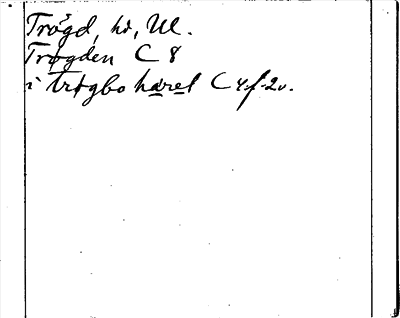 Trögd, hd, Ul.
Trøgden C 8
i trøgbo háret C 4f. 2v.